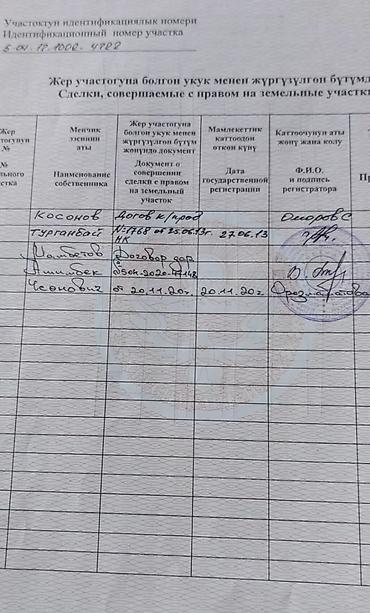 Участоктун идентификациялык номери
Идентификационный номер участка
Жер участогуна болгон укук менен жүргүзүлгөн бүтүмд
Сделки, совершаемые с правом на земельные участки
Жер
тогунун
№
№
льного
стка
Менчик
ээсинин
аты
Наименование
собственника
Жер участогуна
болгон укук менен
жүргүзүлгөн бүтүм
жөнүндө документ
Документ о
совершении
сделки с правом
на земельный
участок
Мамлекеттик
каттоодон
өткөн күнү
Дата
государственной
регистрации
Каттоочунун аты
жөнү жана колу
Ф.И.О.
и подпись
регистратора
Пр
Косонов Догов к/прод Омаров С
Турганбай №1768 от 25.06.13г. 27.06.13
НК
Мамбетов Договор дар
Ашимбек
Чеонович от 20.11.20г. 20.11.20г